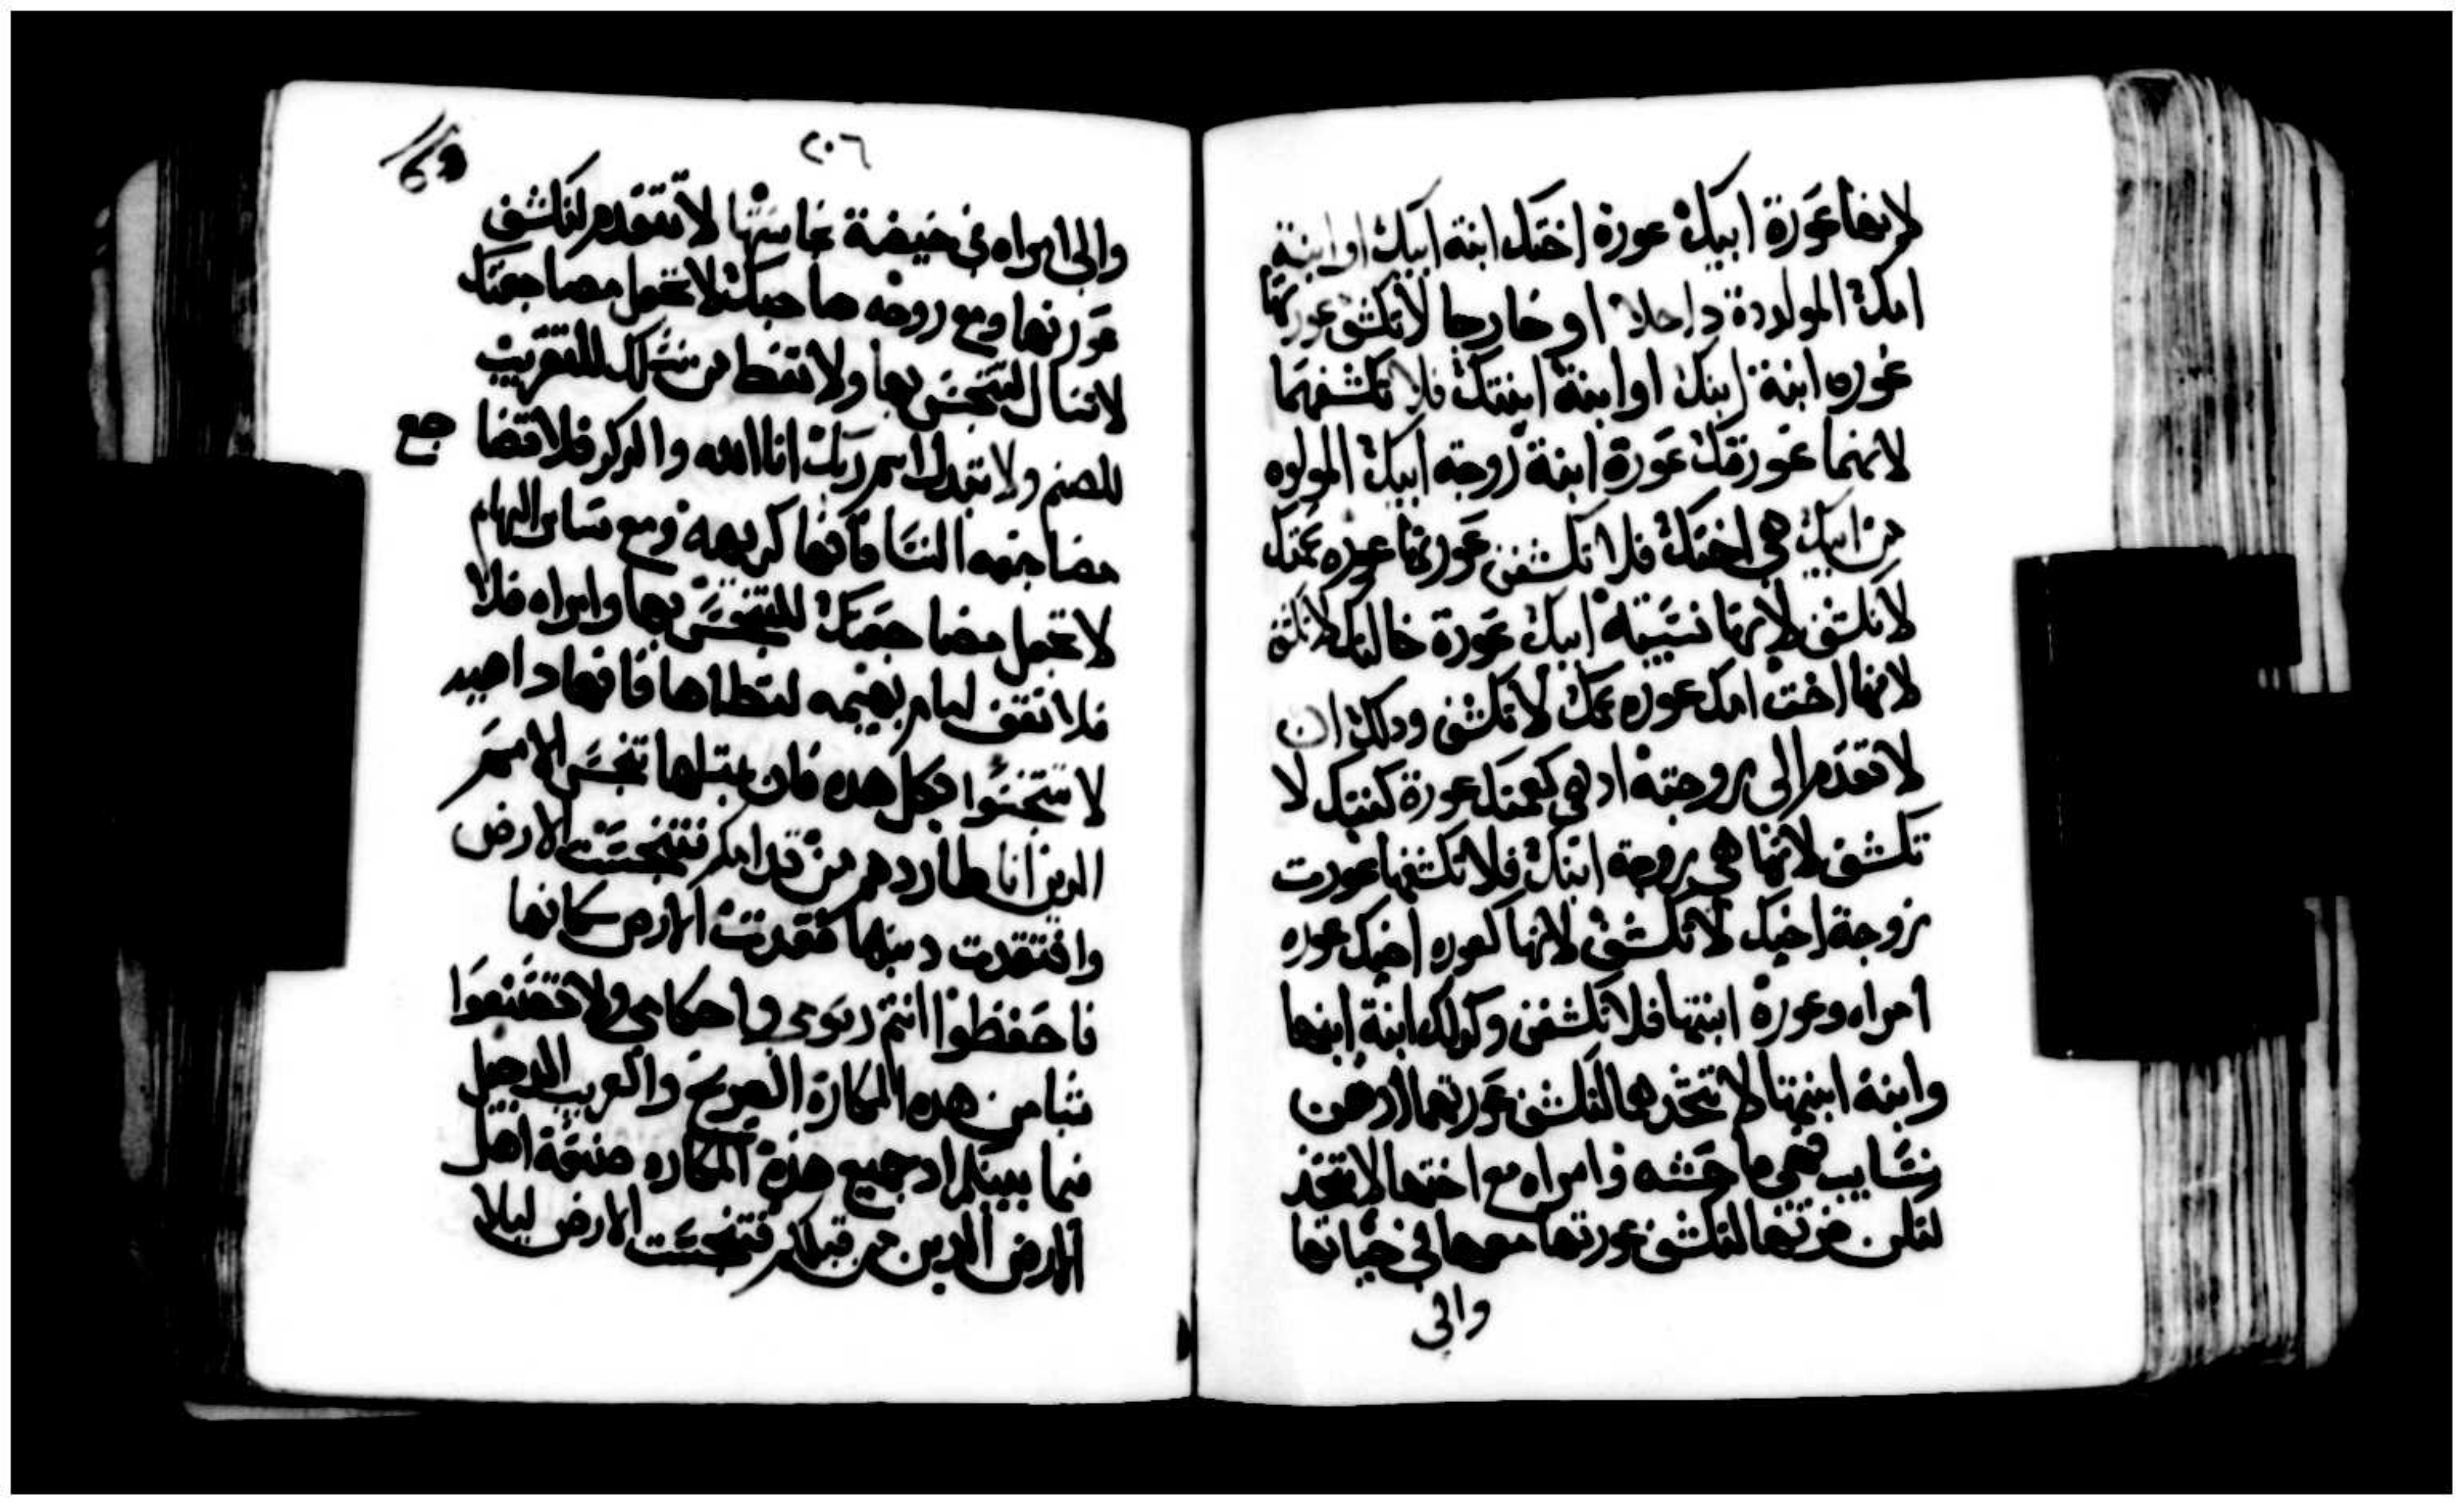 لانها عورة ابيك عورة اختك ابنة ابيك او ابنة
امك المولودة داخلا او خارجا لا تكشف عورتها
عوره ابنة ابنك او ابنة ابنتك فلا تكشفهما
لانهما عورتك عورة ابنة زوجة ابيك المولوه
من ابيك هي اختك فلا تكشفن عورتها عوره عمتك
لا تكشف لانها نسيبة ابيك عورة خالتك لا تكشف
لانها اخت امك عوره عمك لا تكشف ودلك ان
لا تقدم الى زوجته اد هي كعمتك عورة كنتك لا
تكشف لانها هي زوجة ابنك فلا تكشفها عورت
زوجة اخيك لا تكشف لانها كعوره اخيك عوره
امراه وعورة ابنتها فلا تكشفن وكدلك ابنة ابنها
وابنة ابنتها لا تتخدهما لتكشف عورتهما ادهن
نسايب فهي فاحشه وامراه مع اختها لا تتخد
لتكن ضرتها لتكشف عورتها معها في حياتها
والى
٢٠٦
والى امراه في حيضة نجاستها لا تتقدم لتكشف
عورتها ومع زوجه صاحبك لا تجعل مضاجعتك
لانسال لتتنجس بها ولا تعط من نسلك للتقريب
للصنم ولا تبدل اسم ربك انا الله والدكر فلا تضا
جع
مضاجعه النسا فانها كريهه ومع ساير البهايم
لا تجعل مضاجعتك للتنجس بها وامراه فلا
فلا تقف امام بهيمه لتطاها فانها داهيه
لا تتنجسوا بكل هده فان بمثلها تنجس الامم
الدين انا طاردهم من قدامكم فتنجست الارض
وافتقدت دنبها فقدت الارض سكانها
فاحفظوا انتم رسومي واحكامي ولا تصنعوا
شيا من هده المكاره الصريح والغريب الدخيل
فيما بينكم اد جميع هذه المكاره صنعة اهل
الارض الدين من قبلكم فتنجست الارض ليلا